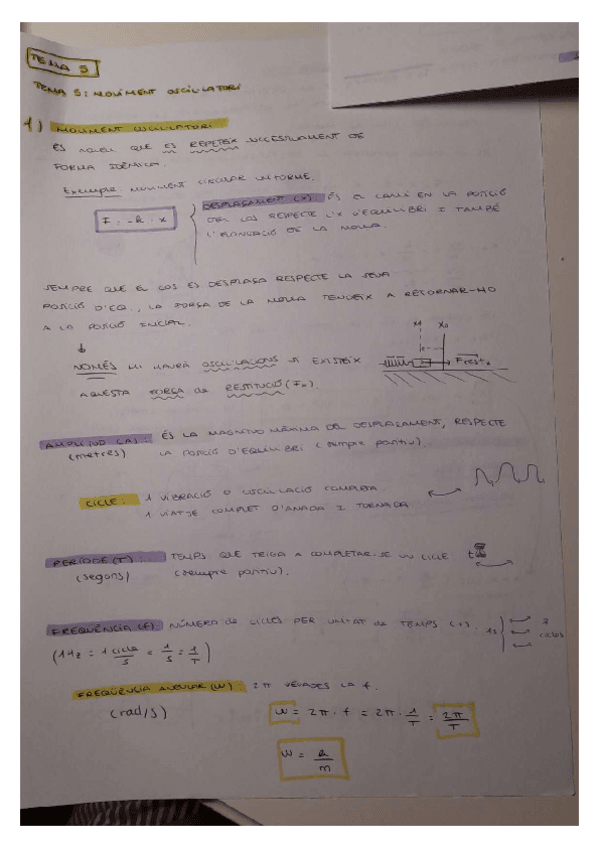 TEMA 5
TEMA 5: MOVIMENT OSCIL·LATORI
1) MOVIMENT OSCIL·LATORI
ÉS AQUELL QUE ES REPETEIX SUCCESSIVAMENT DE
FORMA IDÈNTICA.
Exemple: MOVIMENT CIRCULAR UNIFORME.
F = -k · x
DESPLAÇAMENT (X) ÉS EL CANVI EN LA POSICIÓ
DEL COS RESPECTE L'X D'EQUILIBRI I TAMBÉ
L'ELONGACIÓ DE LA MOLLA.
SEMPRE QUE EL COS ES DESPLAÇA RESPECTE LA SEVA
POSICIÓ D'EQ., LA FORÇA DE LA MOLLA TENDEIX A RETORNAR-HO
A LA POSICIÓ INICIAL.
NOMÉS HI HAURÀ OSCIL·LACIONS SI EXISTEIX
AQUESTA FORÇA de RESTITUCIÓ
X0
AMPLITUD (A): ÉS LA MAGNITUD MÀXIMA DEL DESPLAÇAMENT, RESPECTE
(metres) LA POSICIÓ D'EQUILIBRI (sempre positiu).
CICLE: 1 VIBRACIÓ O OSCIL·LACIÓ COMPLETA
1 VIATJE COMPLET D'ANADA I TORNADA
PERÍODE (T): TEMPS QUE TRIGA A COMPLETAR-SE UN CICLE t
(segons) (sempre positiu).
FREQÜÈNCIA (f): NÚMERO de CICLES PER UNITAT de TEMPS (1s). 1s } 3 cicles
(1Hz = 1 cicle/s = 1/s = 1/T)
FREQÜÈNCIA ANGULAR (W) 2π VEGADES LA f.
(rad/s) w = 2π · f = 2π · 1/T = 2π/T
w = k/m